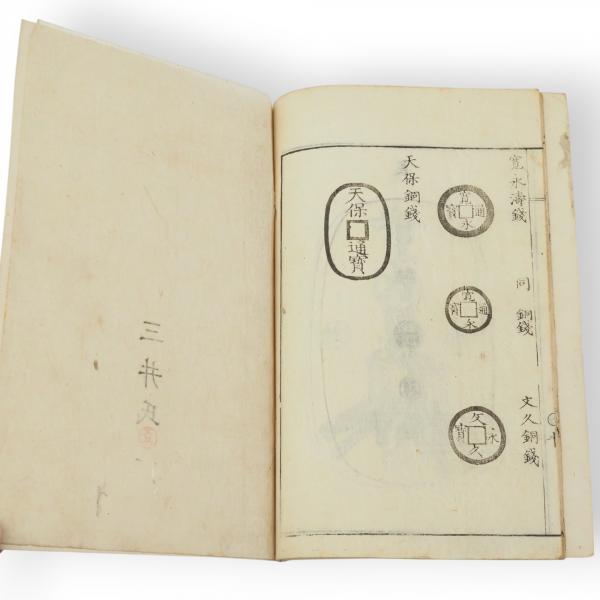 寛永濤錢
寛永通寳
同 銅錢
寛永通寳
文久銅錢
文久永寳
天保銅錢
天保通寳
三井氏